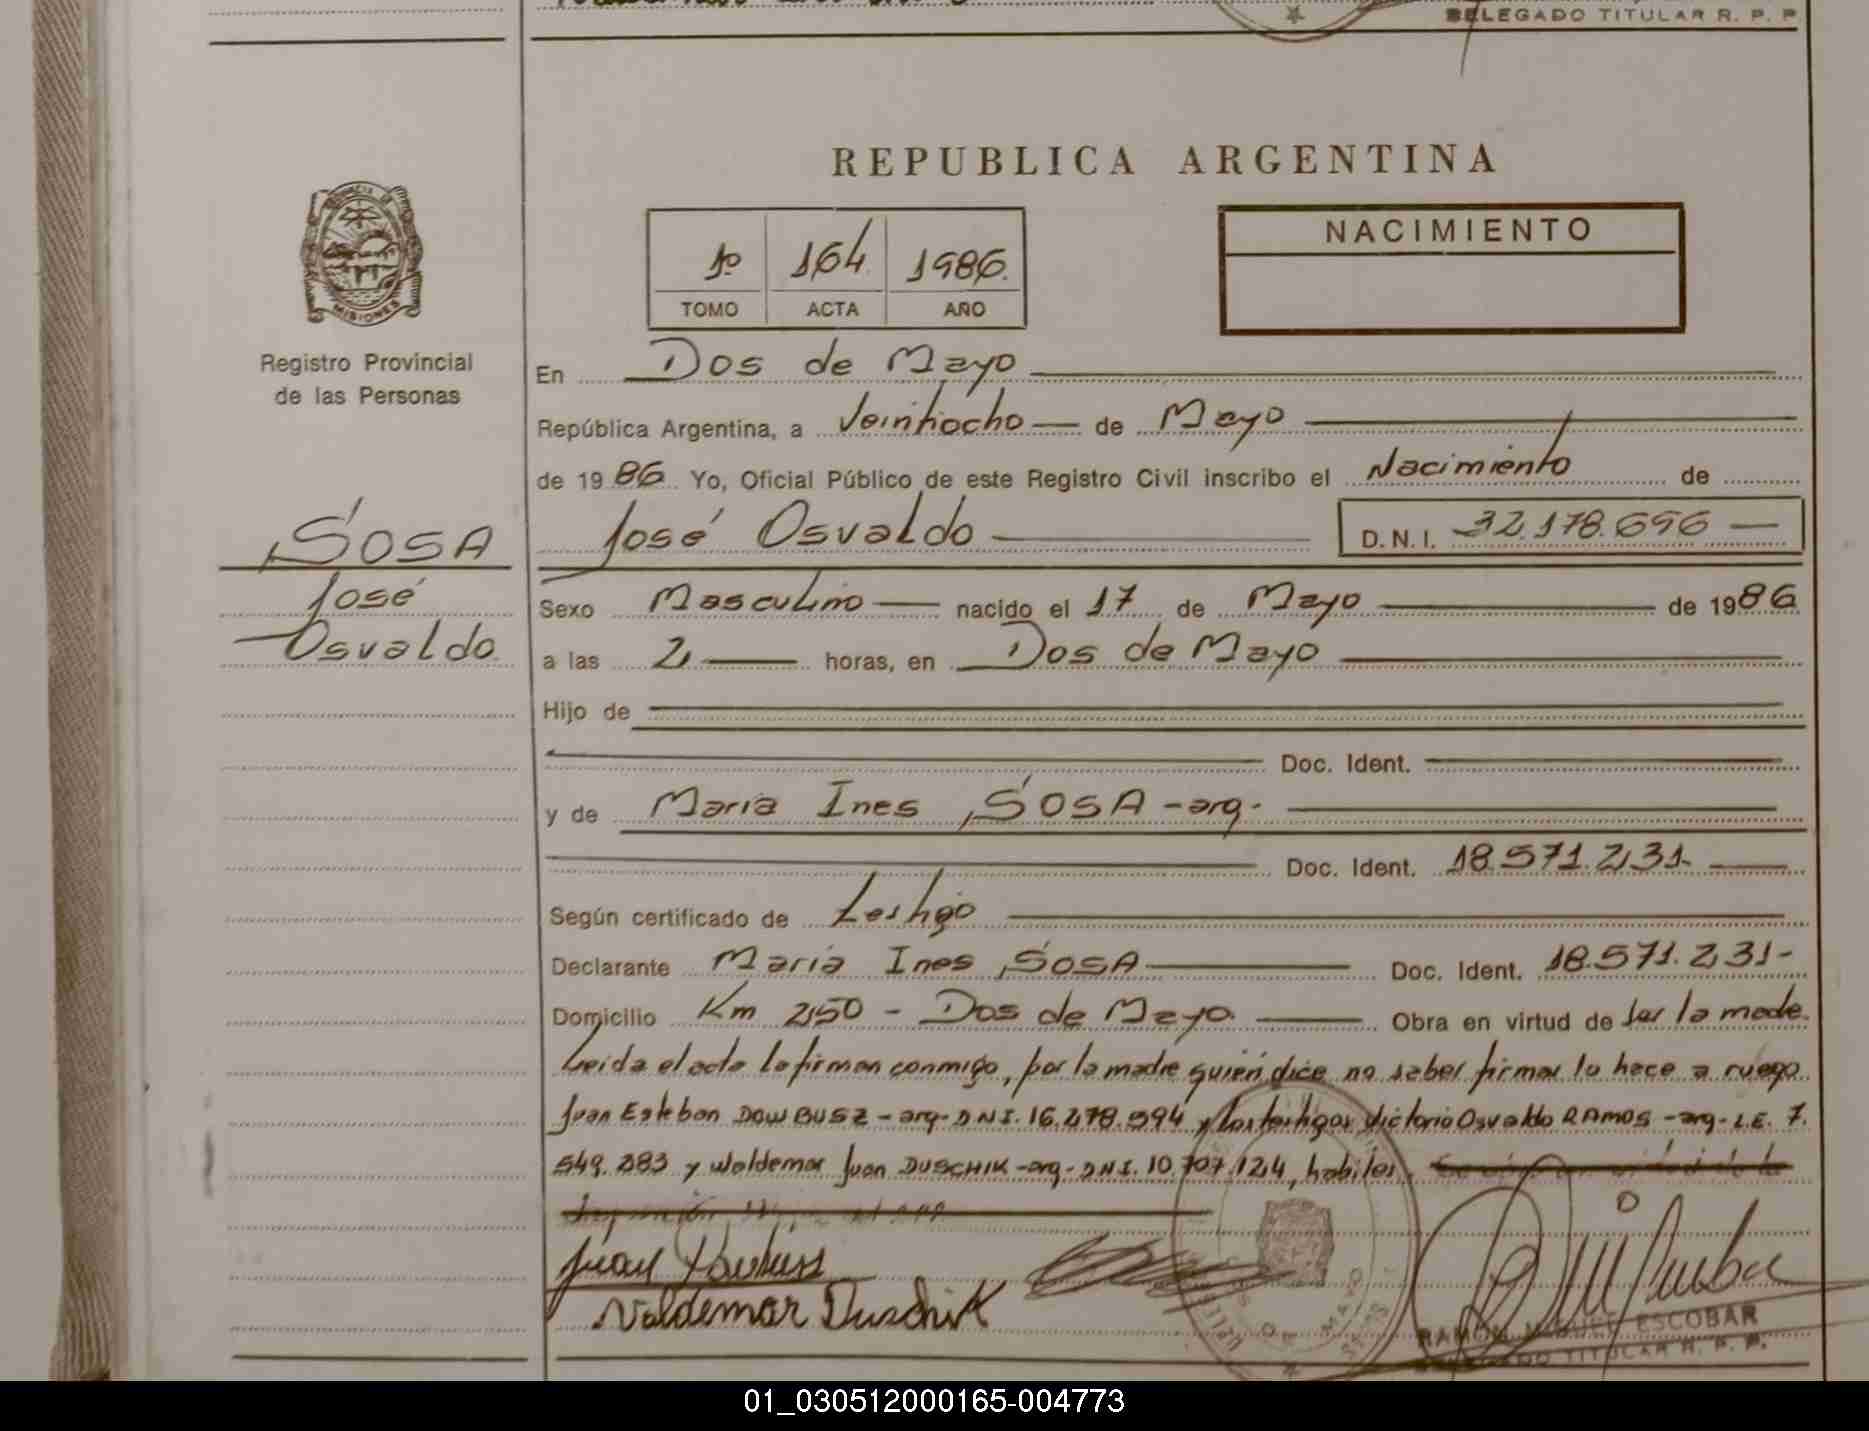 DELEGADO TITULAR R. P. P
REPUBLICA ARGENTINA
1º 164 1986.
TOMO ACTA AÑO
NACIMIENTO
MISIONES
Registro Provincial
de las Personas
En Dos de Mayo
República Argentina, a Veintiocho de Mayo
de 1986. Yo, Oficial Público de este Registro Civil inscribo el Nacimiento de
SOSA
José
Osvaldo
José Osvaldo D.N.I. 32.178.696
Sexo Masculino nacido el 17 de Mayo de 1986
a las 2, horas, en Dos de Mayo
Hijo de
Doc. Ident.
y de Maria Ines SOSA - arg.
Doc. Ident. 18.571.231-
Según certificado de Testigo
Declarante Maria Ines SOSA Doc. Ident. 18.571.231-
Domicilio Km 250 - Dos de Mayo. Obra en virtud de ser la madre.
Leida el acta la firman conmigo, por la madre quien dice no saber firmar lo hace a ruego
Juan Esteban DOWBUSZ - arg- DNI. 16.278.594 y los testigos Victorio Osvaldo RAMOS - arg- L.E. 7.
549.283 y Waldemar Juan DUSCHIK - arg- DNI. 10.707.124, habiles.
Juan
Valdemar Duschik
DOS DE MAYO
RAMON MIGUEL ESCOBAR
DELEGADO TITULAR R. P. P.
01_030512000165-004773